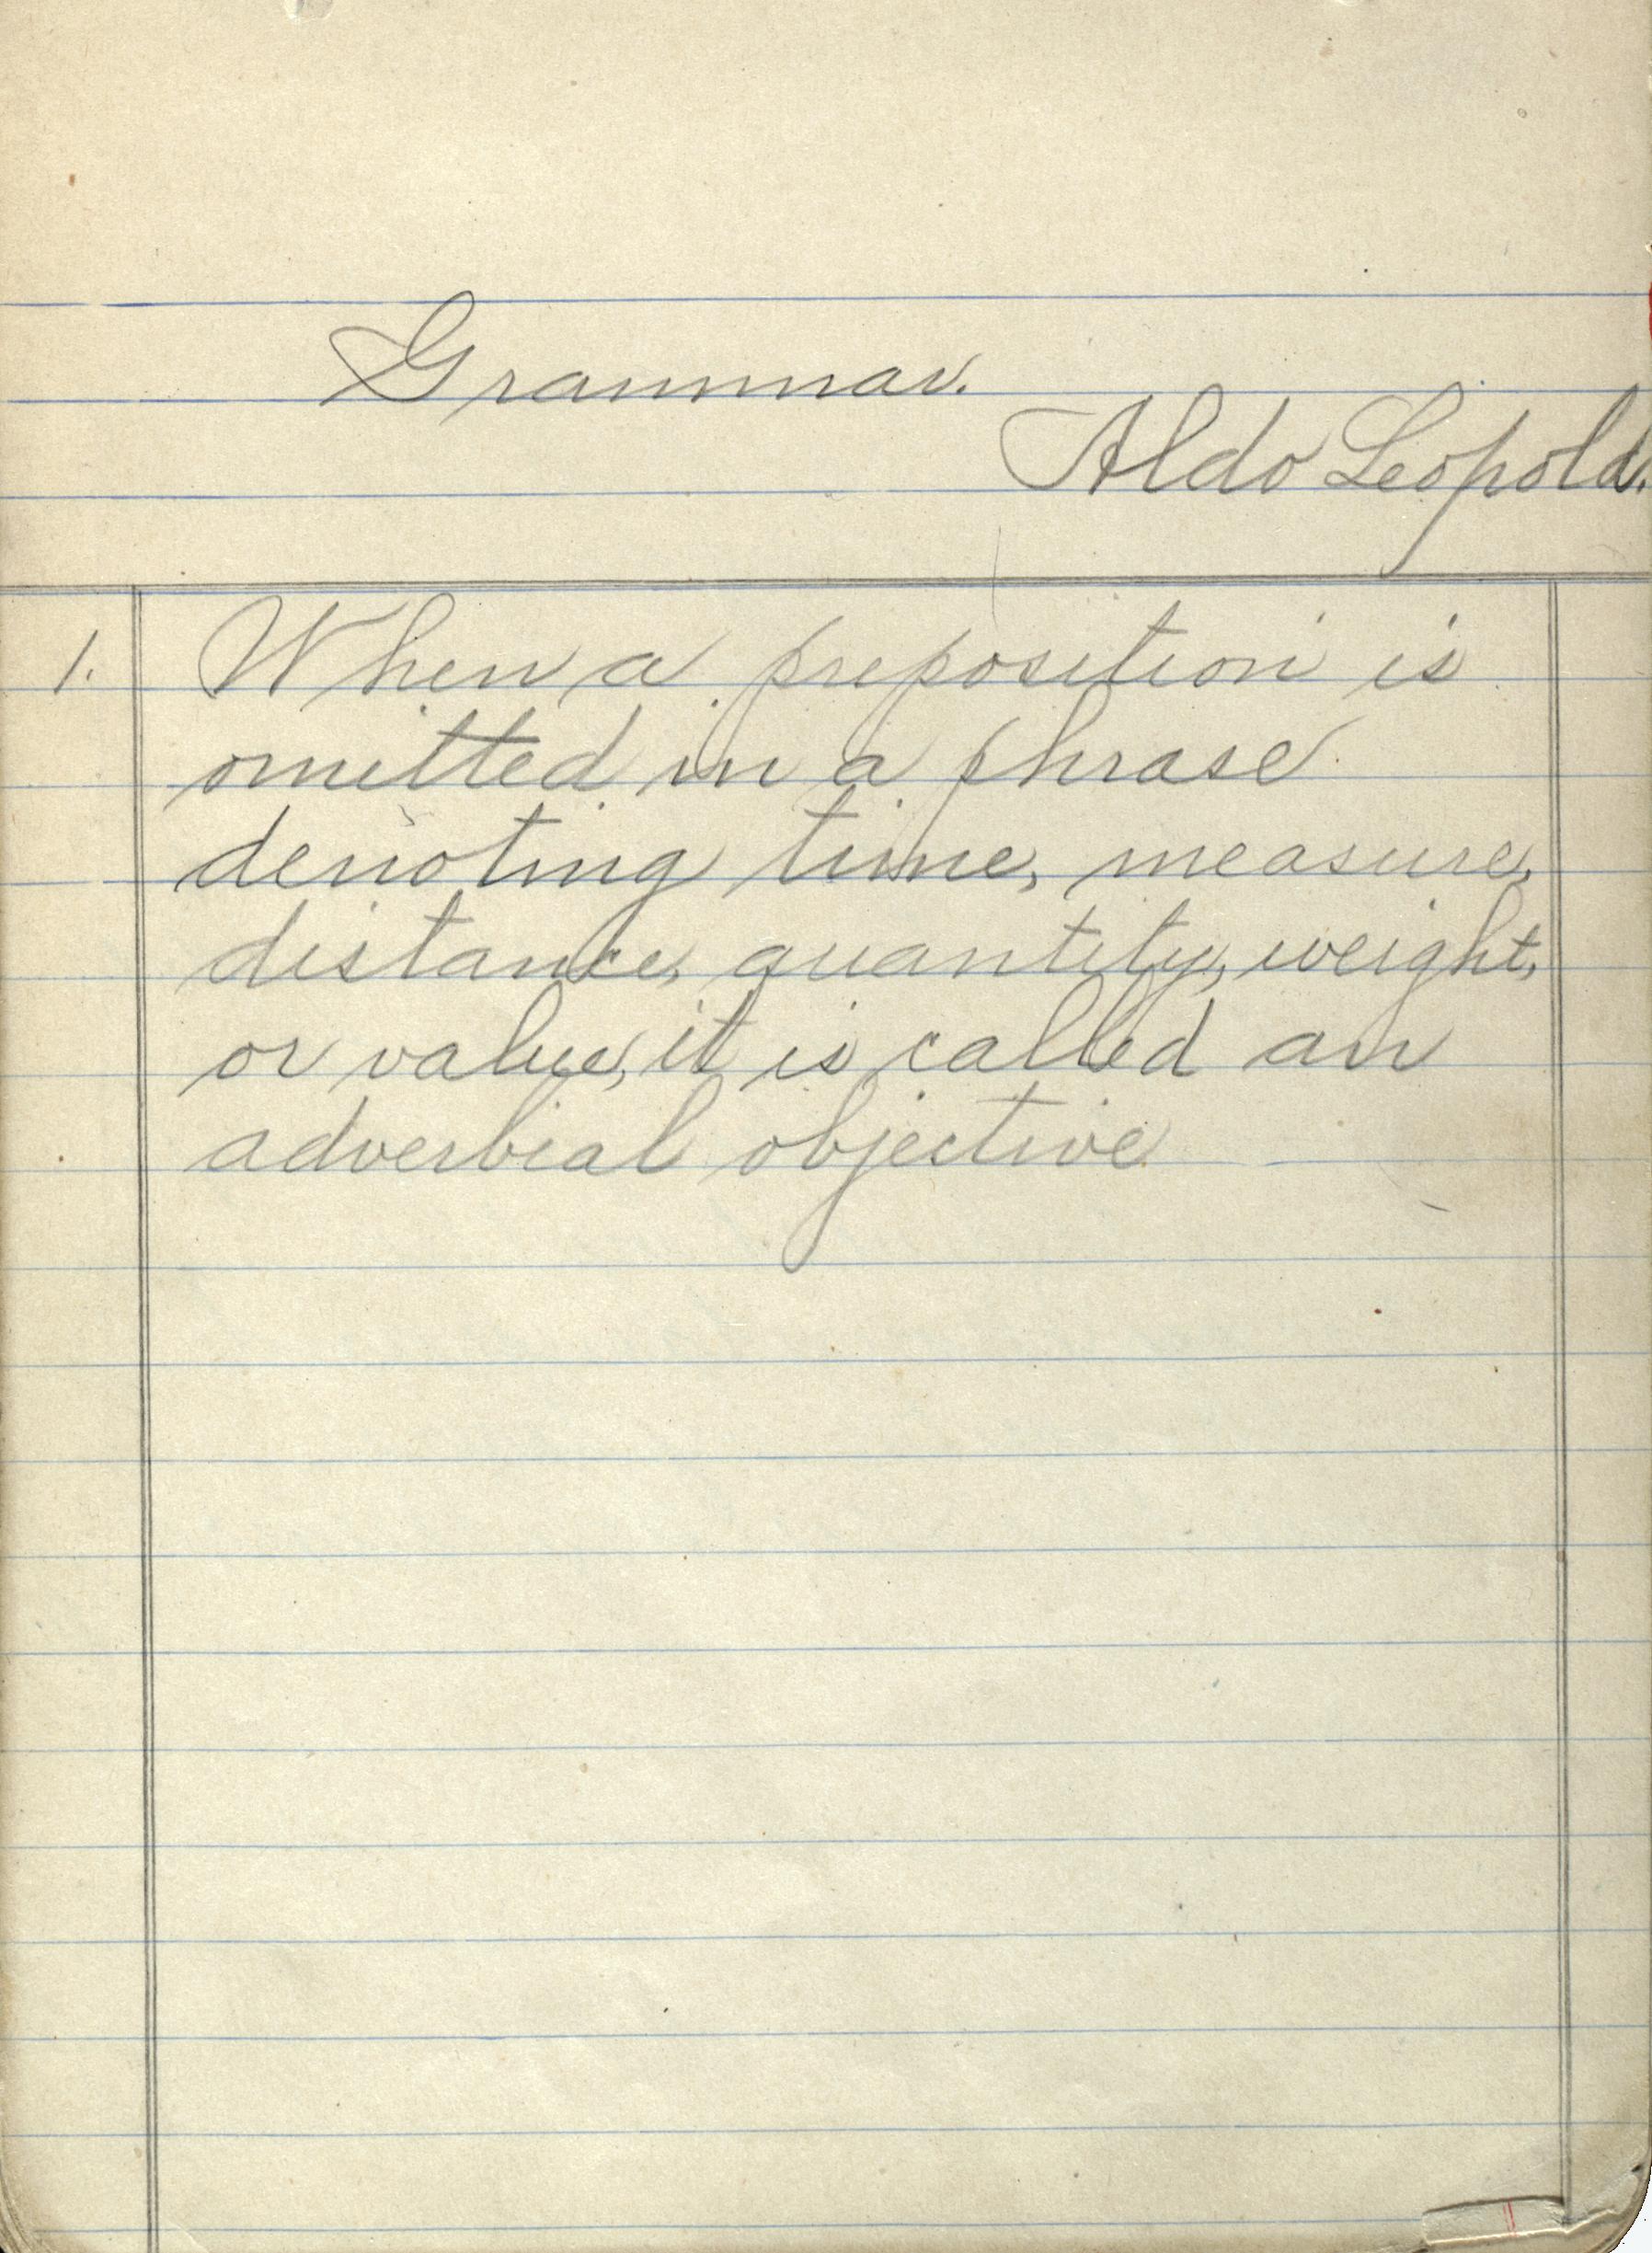 Grammar.
Aldo Leopold.
1. When a preposition is
omitted in a phrase
denoting time, measure,
distance, quantity, weight,
or value, it is called an
adverbial objective